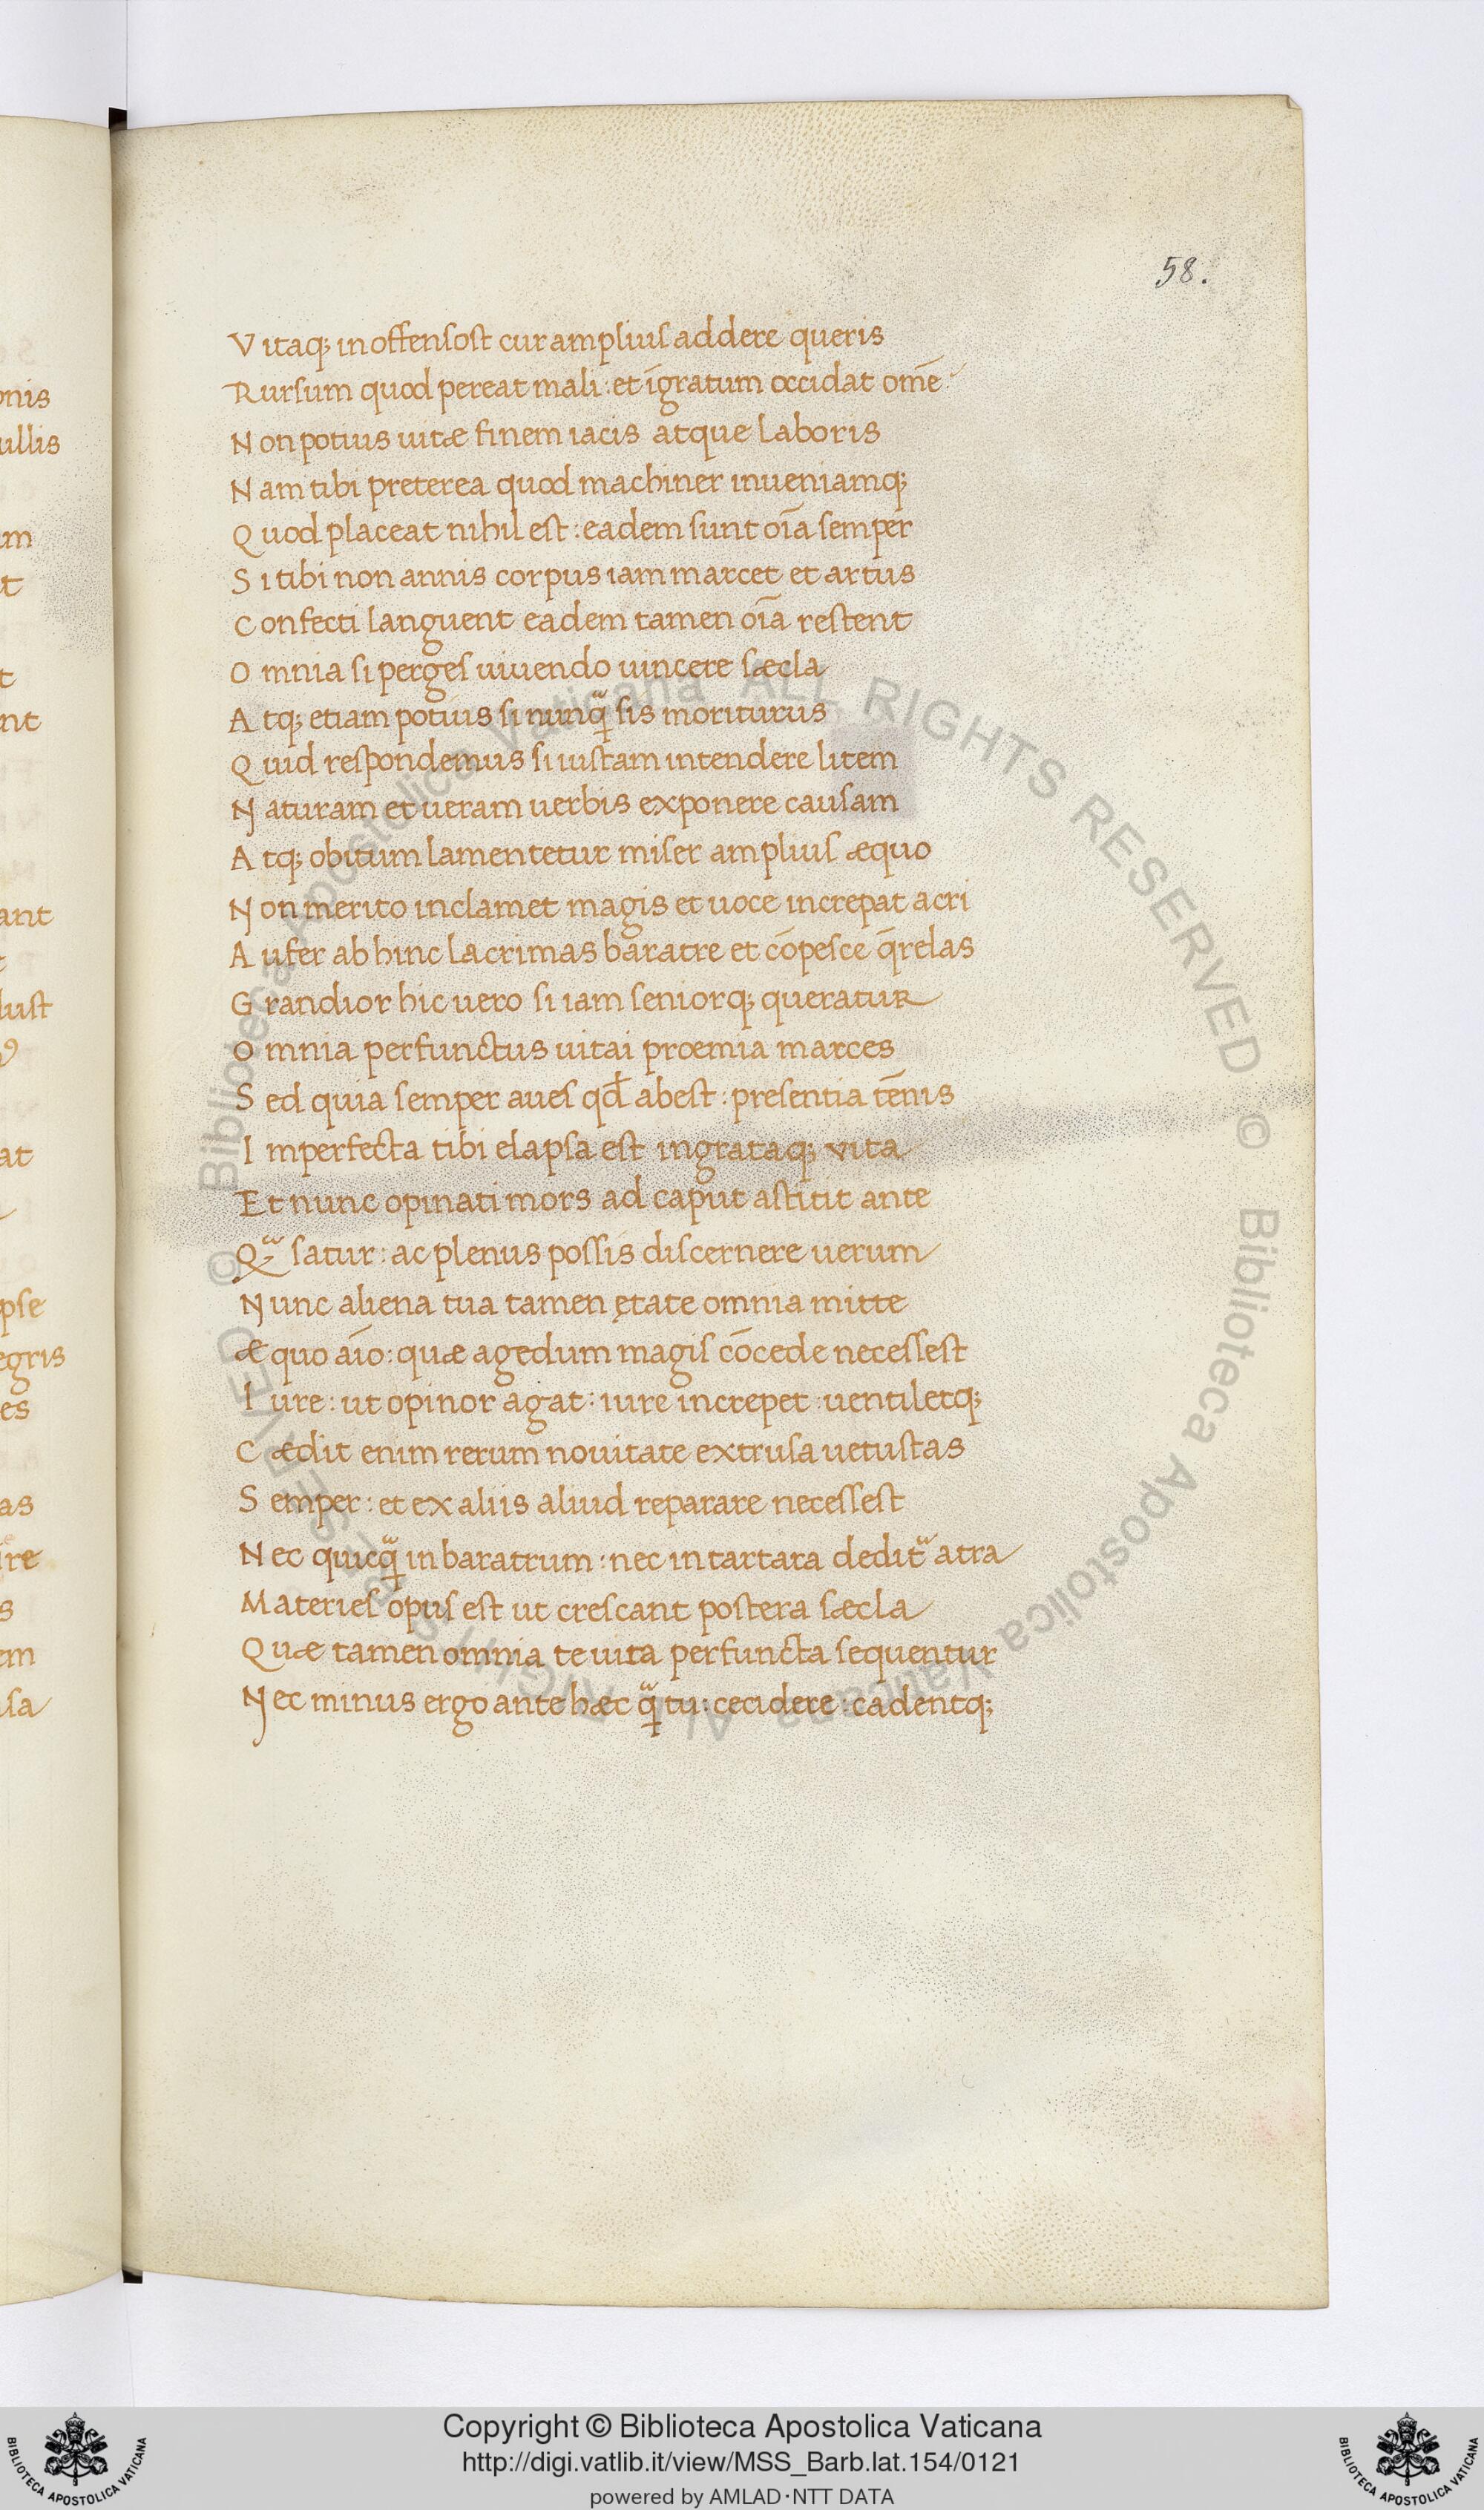 58.
onis
ullis
um
t
t
nt
ant
t
lust
at
pse
egris
es
as
ire
s
em
usa
Vitaq; in offensost cur amplius addere queris
Rursum quod pereat mali: et īgratum occidat om̄e
Non potius uitæ finem iacis atque laboris
Nam tibi preterea quod machiner inueniamq;
Quod placeat nihil est: eadem sunt oīa semper
Si tibi non annis corpus iam marcet et artus
Confecti languent eadem tamen oīa restent
Omnia si perges uiuendo uincere sæcla
Atq; etiam potius si nunq̃ sis moriturus
Quid respondemus si iustam intendere litem
Naturam et ueram uerbis exponere causam
Atq; obitum lamentetur miser amplius æquo
Non merito inclamet magis et uoce increpat acri
Aufer ab hinc lacrimas baratre et cōpesce q̄relas
Grandior hic uero si iam seniorq; queratur
Omnia perfunctus uitai proemia marces
Sed quia semper aues qđ abest: presentia tēnis
Imperfecta tibi elapsa est ingrataq; vita
Et nunc opinati mors ad caput astitit ante
Q̃ satur: ac plenus possis discernere uerum
Nunc aliena tua tamen ętate omnia mitte
Æquo aīo: quæ agedum magis cōcede necessest
Iure: ut opinor agat: iure increpet: uentiletq;
Cædit enim rerum nouitate extrusa uetustas
Semper: et ex aliis aliud reparare necessest
Nec quicq̃ in baratrum: nec in tartara deditᷓ atra
Materies opus est ut crescant postera sæcla
Quæ tamen omnia te uita perfuncta sequentur
Nec minus ergo ante hæc q̃ tu: cecidere: cadentq;
© Biblioteca Apostolica Vaticana ALL RIGHTS RESERVED © Biblioteca Apostolica Vaticana ALL RIGHTS RESERVED
BIBLIOTECA APOSTOLICA VATICANA
Copyright © Biblioteca Apostolica Vaticana
http://digi.vatlib.it/view/MSS_Barb.lat.154/0121
powered by AMLAD·NTT DATA
BIBLIOTECA APOSTOLICA VATICANA